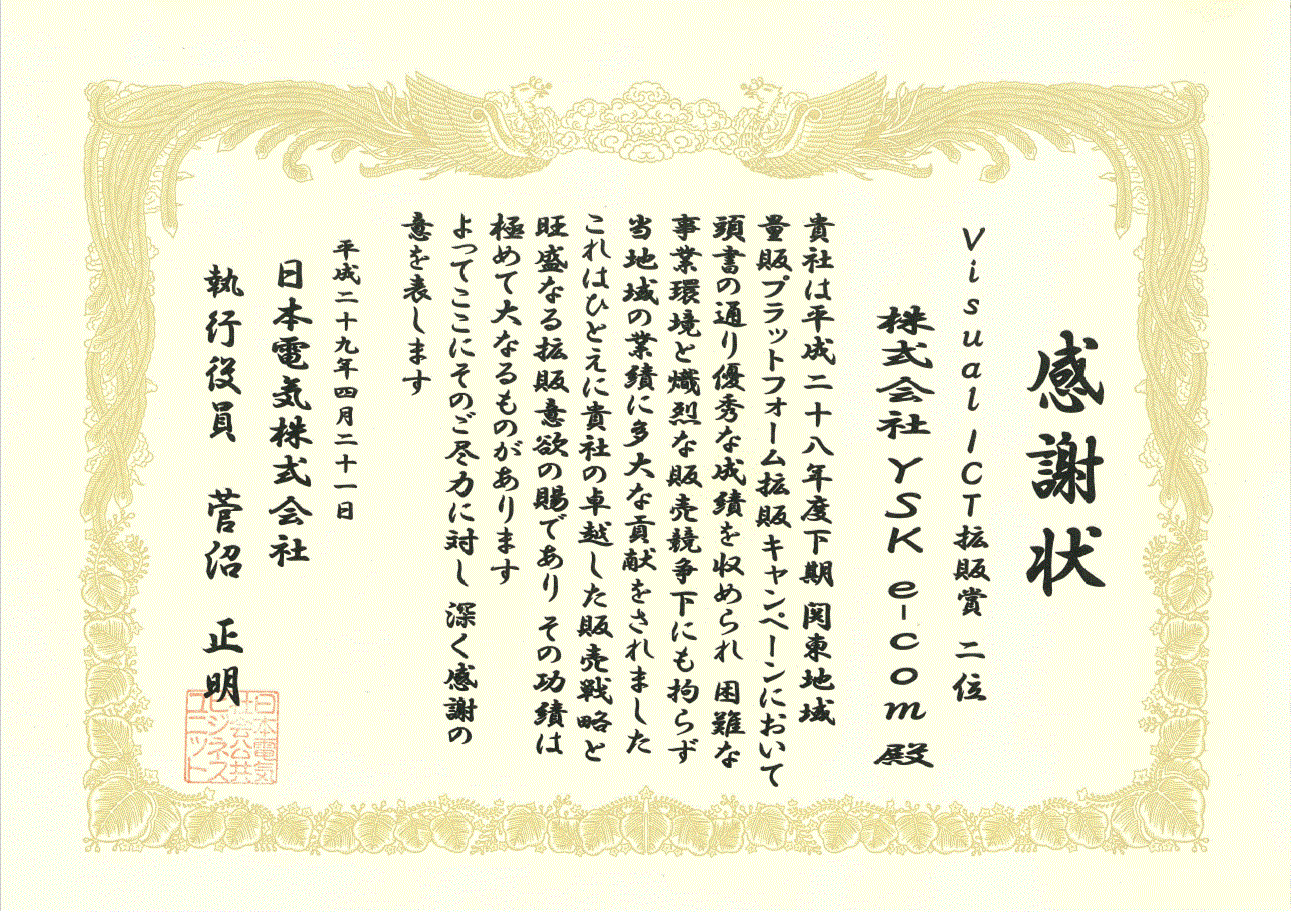 感謝状
Visual ICT拡販賞 二位
株式会社 YSK e-com 殿
貴社は平成二十八年度下期 関東地域
量販プラットフォーム拡販キャンペーンにおいて
頭書の通り優秀な成績を収められ 困難な
事業環境と熾烈な販売競争下にも拘らず
当地域の業績に多大な貢献をされました
これはひとえに貴社の卓越した販売戦略と
旺盛なる拡販意欲の賜であり その功績は
極めて大なるものがあります
よってここにそのご尽力に対し 深く感謝の
意を表します
平成二十九年四月二十一日
日本電気株式会社
執行役員 菅沼 正明
日本電気
社会公共
ビジネス
ユニット